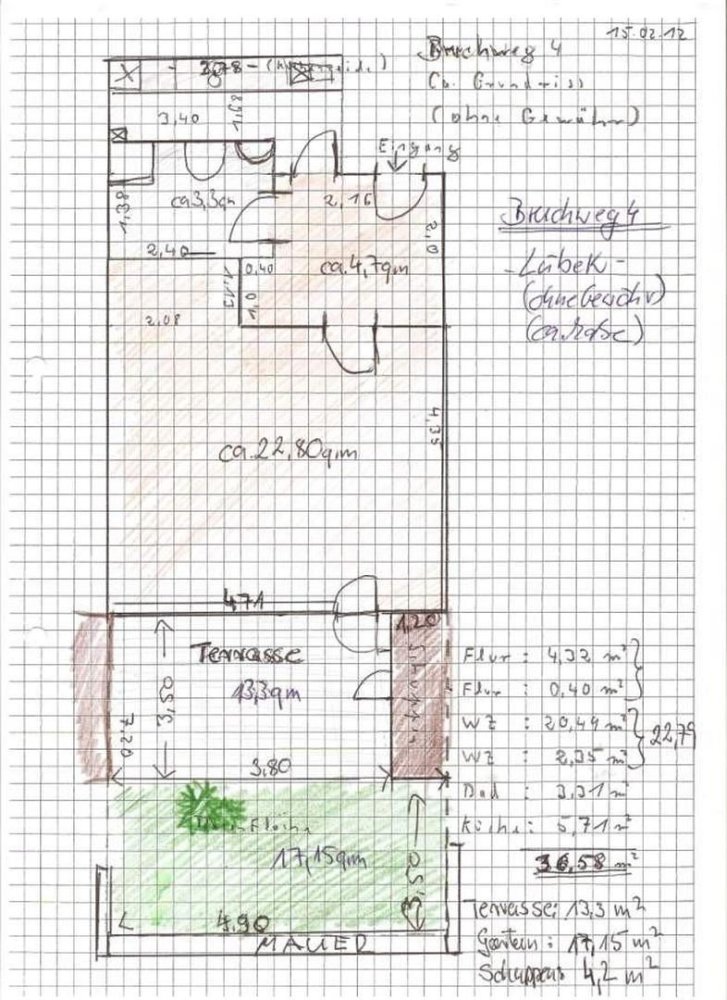 15.02.12
Bruchweg 4
Ca. Grundriss
(ohne Gewähr)
3,78
3,40
1,68
Eingang
Bruchweg 4
-Lübeck-
(ohne Gewähr)
(ca. Maße)
ca 3,3qm
1,38
2,16
2,0
2,40
0,40
ca. 4,7qm
1,13
1,0
2,08
4,35
ca. 22,80qm
4,71
1,20
Terrasse
Schuppen
13,3qm
3,50
7,20
3,80
Flur : 4,32 m²
Flur : 0,40 m²
WZ : 20,49 m²
22,79
WZ : 2,35 m²
Bad : 3,31 m²
Küche : 5,71 m²
36,58 m²
17,15qm
3,50
4,90
MAUER
Terrasse: 13,3 m²
Garten : 17,15 m²
Schuppen: 4,2 m²